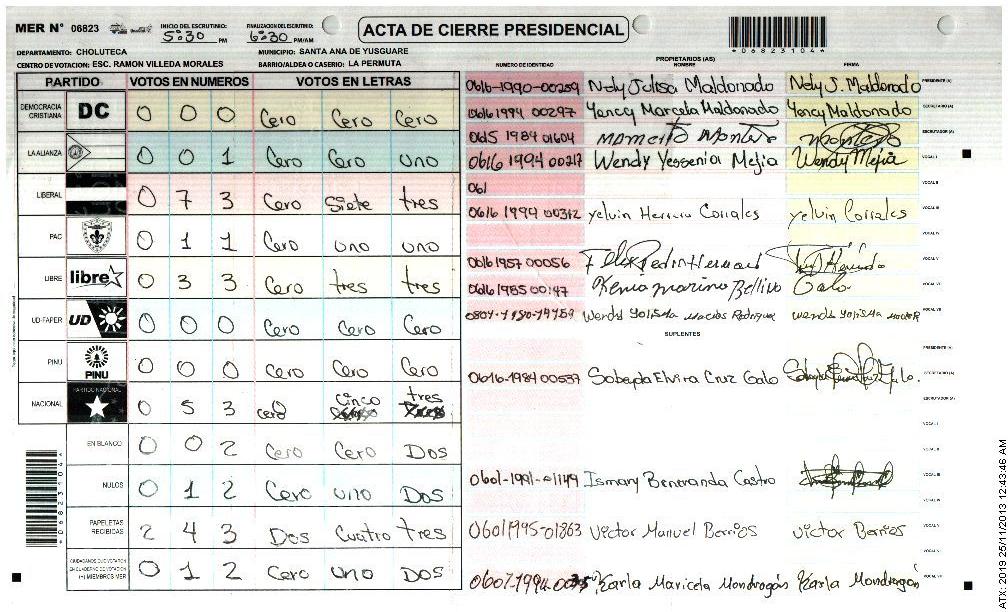 MER N° 06823
INICIO DEL ESCRUTINIO: 5:30 PM
FINALIZACION DEL ESCRUTINIO: 6:30 PM/AM
ACTA DE CIERRE PRESIDENCIAL
*06823104*
DEPARTAMENTO: CHOLUTECA
MUNICIPIO: SANTA ANA DE YUSGUARE
CENTRO DE VOTACION: ESC. RAMON VILLEDA MORALES
BARRIO/ALDEA O CASERIO: LA PERMUTA
PARTIDO VOTOS EN NUMEROS VOTOS EN LETRAS
DEMOCRACIA CRISTIANA DC 0 0 0 Cero Cero Cero
LA ALIANZA 0 0 1 Cero Cero uno
LIBERAL 0 7 3 Cero Siete tres
PAC 0 1 1 Cero uno uno
LIBRE libre 0 3 3 Cero tres tres
UD-FAPER UD 0 0 0 Cero Cero Cero
PINU PINU 0 0 0 Cero Cero Cero
NACIONAL PARTIDO NACIONAL 0 5 3 cero cinco tres
EN BLANCO 0 0 2 Cero Cero Dos
NULOS 0 1 2 Cero uno Dos
PAPELETAS RECIBIDAS 2 4 3 Dos Cuatro tres
CIUDADANOS QUE VOTARON EN CUADERNO DE VOTACION (+) MIEMBROS MER 0 1 2 Cero uno Dos
*06823104*
PROPIETARIOS (AS)
NUMERO DE IDENTIDAD NOMBRE FIRMA
0616-1990-00259 Nely Julisa Maldonado Nely J. Maldonado PRESIDENTE (A)
0616 1994 00297 Yency Marcela Maldonado Yency Maldonado SECRETARIO (A)
0615 1984 01604 ESCRUTADOR (A)
0616 1994 00217 Wendy Yessenia Mejia Wendy Mejia VOCAL I
061 VOCAL II
0616 1994 00312 yelvin Herrera Corrales yelvin Corrales VOCAL III
VOCAL IV
0616 1957 00056 VOCAL V
0616 1985 00147 Galo VOCAL VI
Wendy VOCAL VII
SUPLENTES
PRESIDENTE (A)
0616-1984 00537 Sobeyda Elvira Cruz Galo SECRETARIO (A)
ESCRUTADOR (A)
VOCAL I
VOCAL II
0601-1991-01149 Ismary Beneranda Castro VOCAL III
VOCAL IV
06011995-01863 Victor Manuel Berrios Victor Berrios VOCAL V
VOCAL VI
0607-1994- Karla Maricela Mondragón Karla Mondragon VOCAL VII
ATX: 2019 25/11/2013 12:43:46 AM